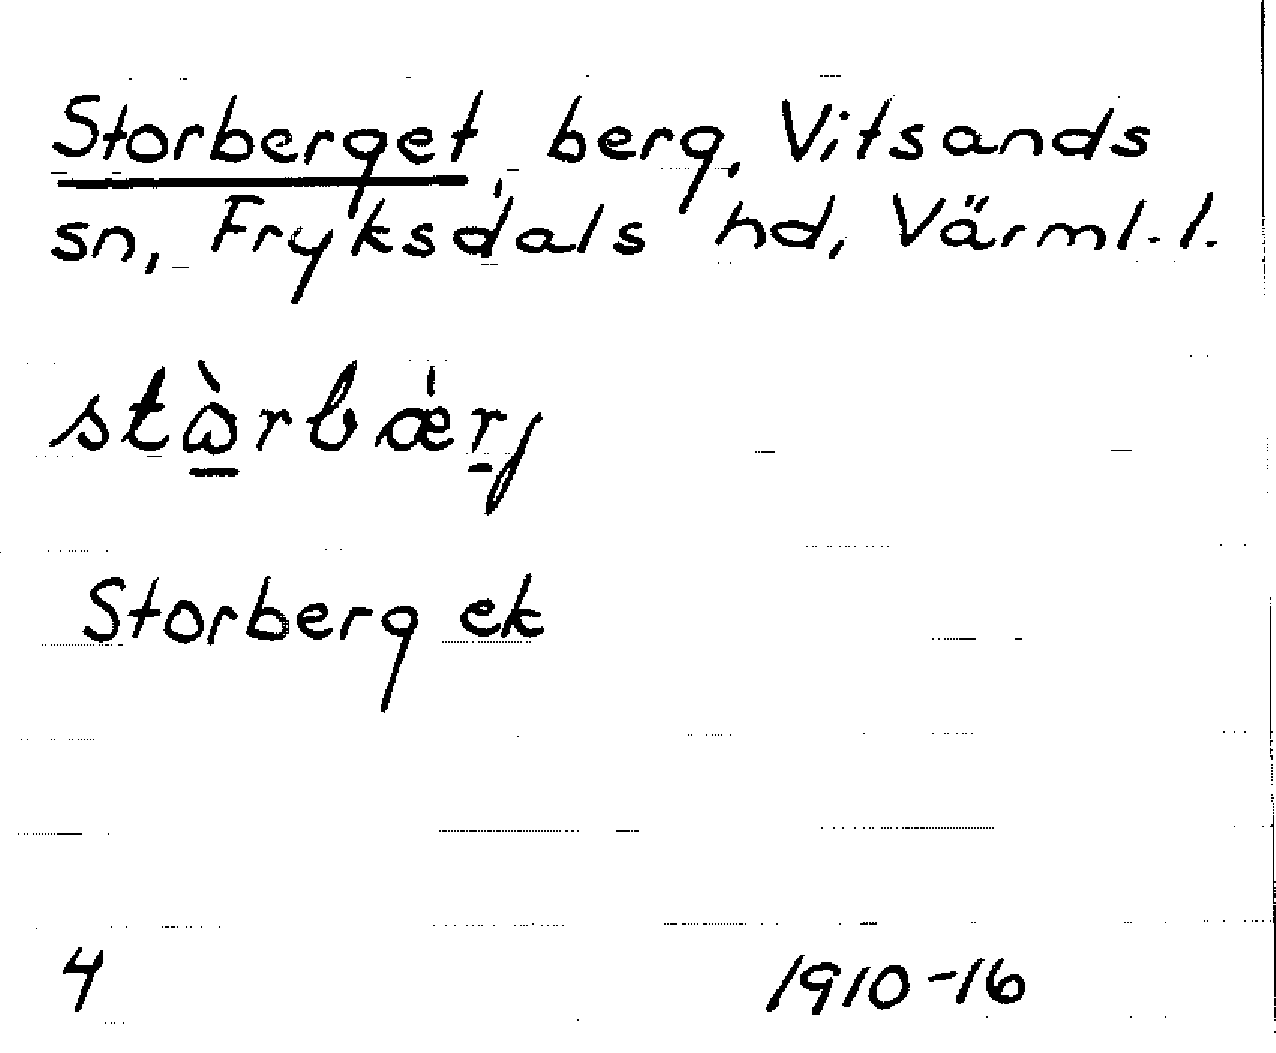 Storberget, berg, Vitsands
sn, Fryksdals hd, Värml. l.
stὼ̲rbæ̍r̲j
Storberg ek
4 1910-16